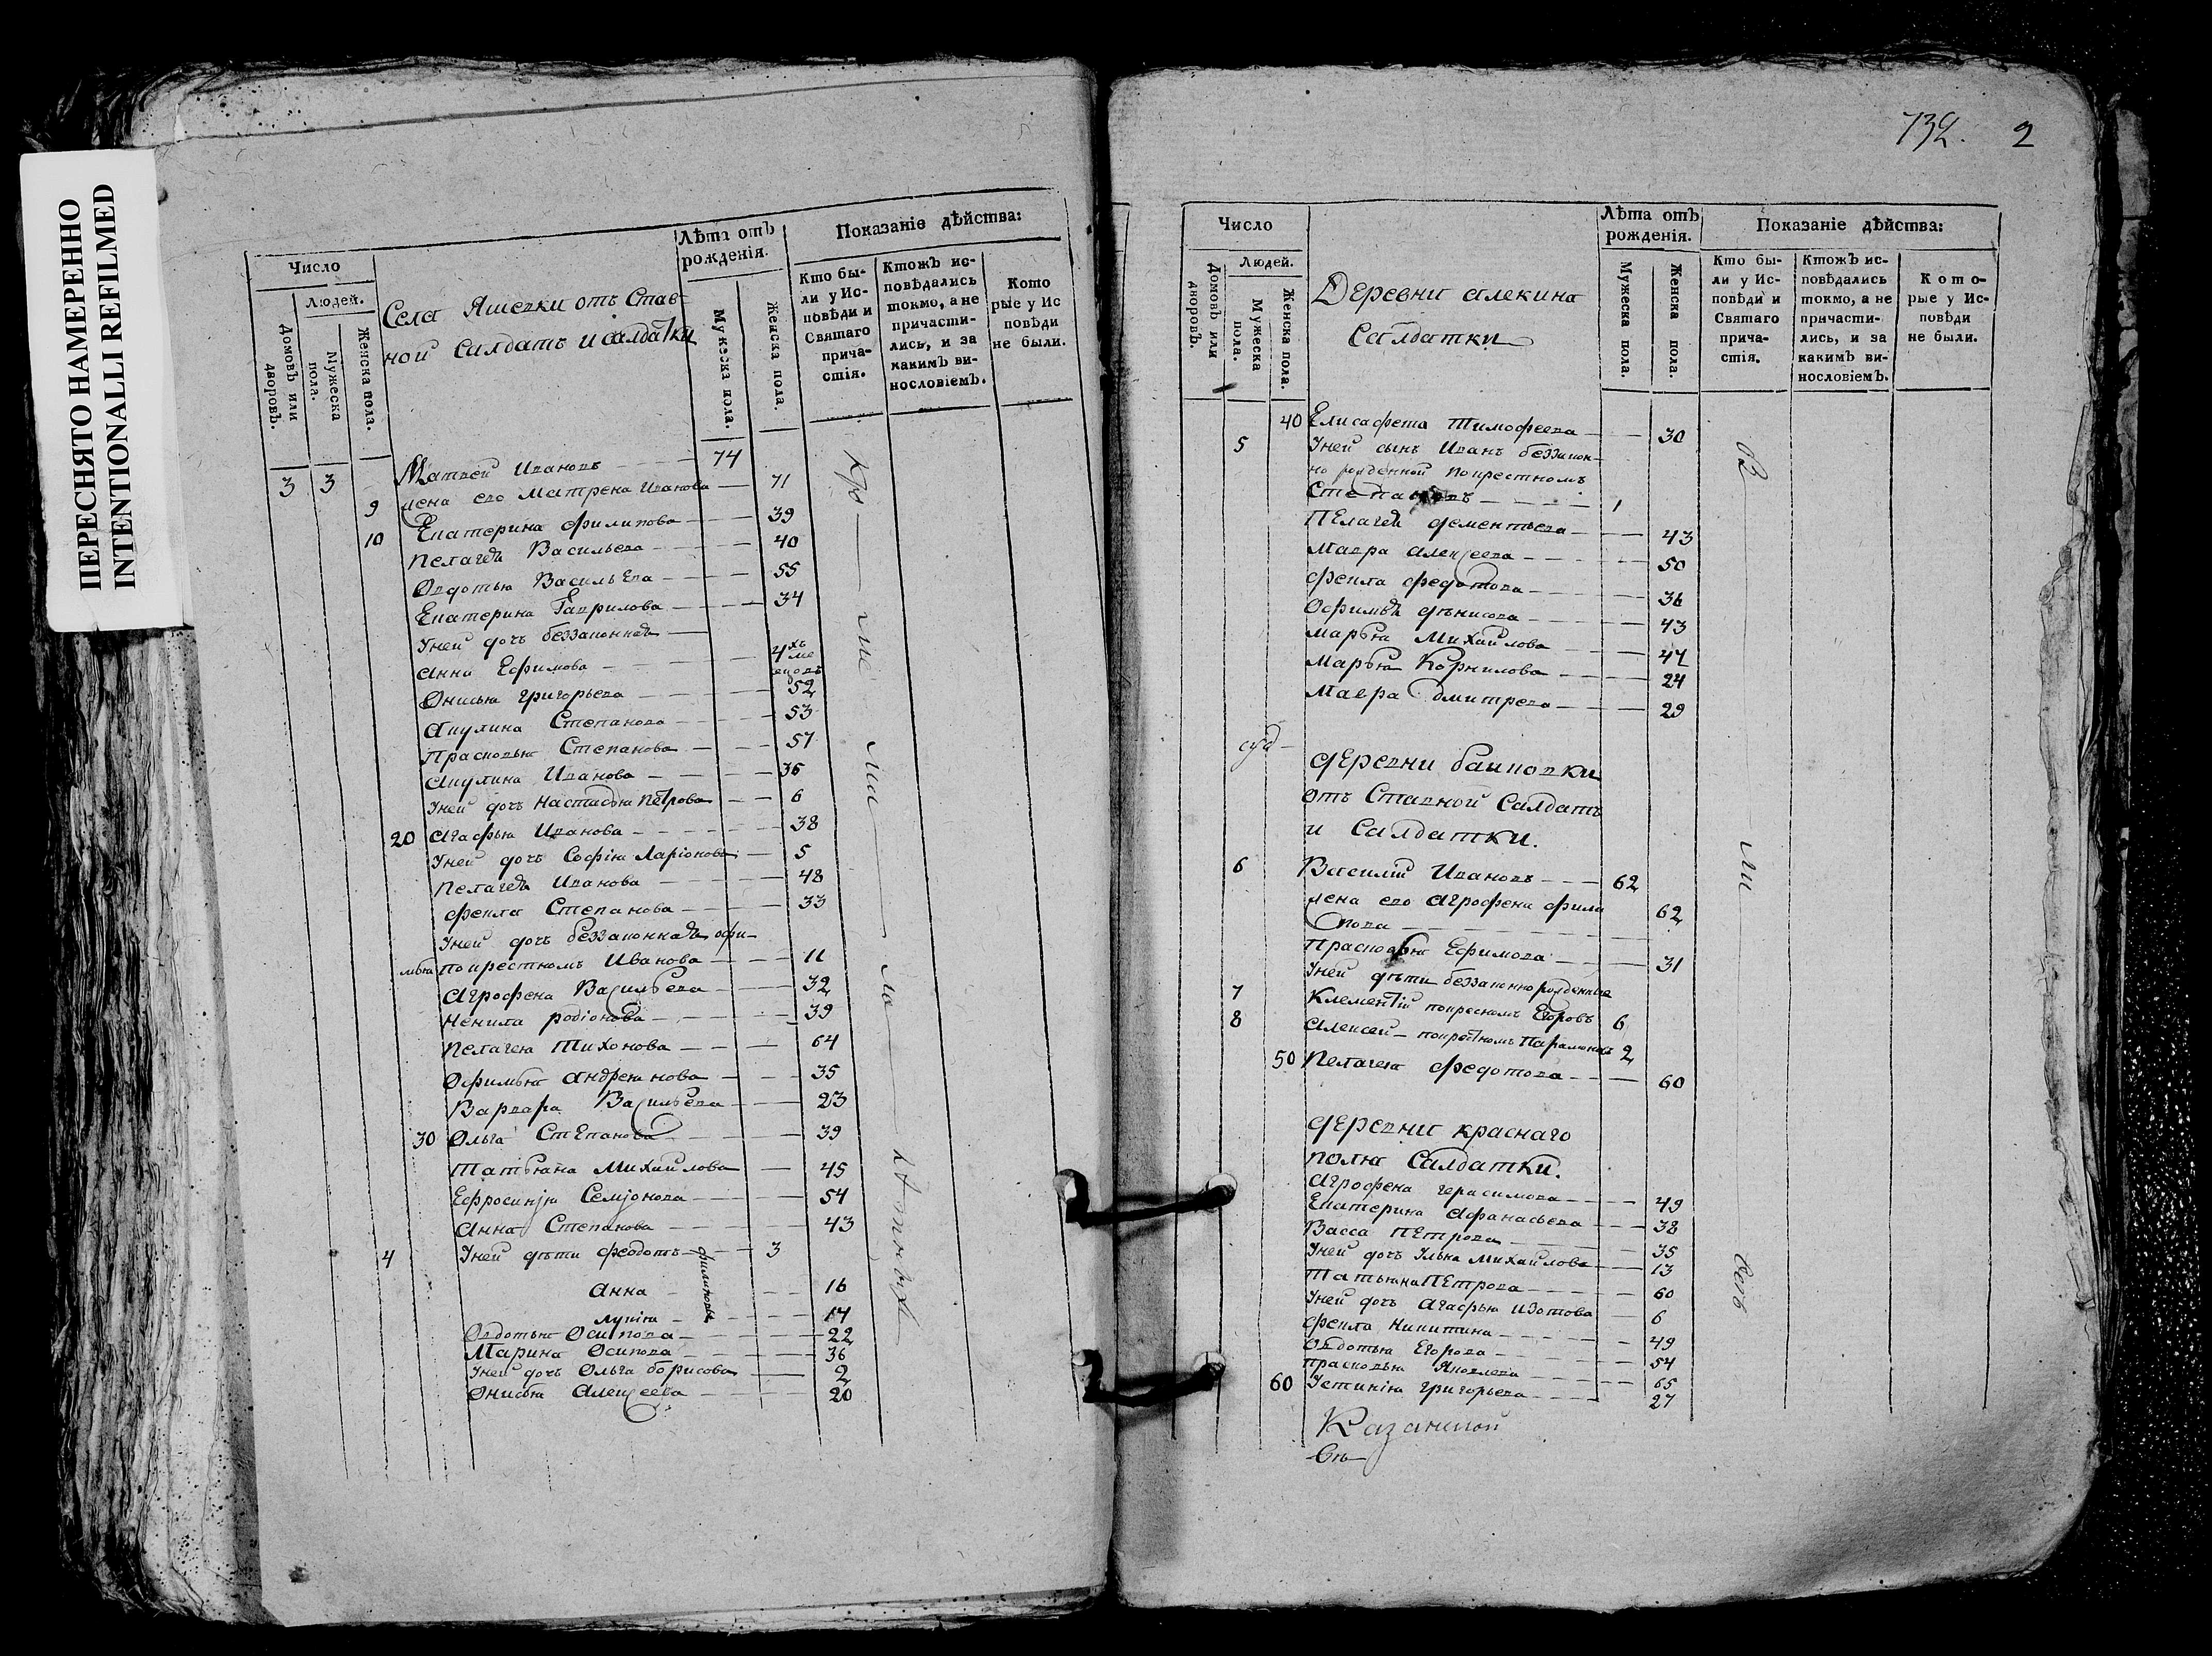 ПЕРЕСНЯТО НАМЕРЕННО
INTENTIONALLI REFILMED
Число
Людей.
Домовъ или дворовъ.
Мужеска пола.
Женска пола.
Села Яшевки отъ Став-
ной Салдатъ и салдатки
Лѣта отъ рожденія.
Мужеска пола.
Женска пола.
Показаніе дѣйства:
Кто бы-
ли у Ис-
повѣди и
Святаго
прича-
стія.
Ктожъ ис-
повѣдались
токмо, а не
причасти-
лись, и за
какимъ ви-
нословіемъ.
Кото
рые у Ис
повѣди
не были.
3 3 Матвей Ивановъ 74
9 жена ево Матрена Иванова 71
10 Екатерина филипова 39
Пелагея Васильева 40
Овдотья Васильева 55
Екатерина Гаврилова 34
Уней дочь беззаконная
Анна Ефимова 4хъ месецовъ
Онисья григорьева 52
Акулина Степанова 53
Прасковья Степанова 57
Акулина Иванова 36
Уней дочь Настасья Петрова 6
20 Агафья Иванова 38
Уней дочь Софія Ларіонова 5
Пелагея Иванова 48
фекла Степанова 33
Уней дочь беззаконная офи-
мья покрестномъ Иванова 11
Агрофена Васильева 32
Ненила родіонова 39
Пелагея Тихонова 64
Офимья андреянова 35
Варвара Васильева 23
30 Ольга Степанова 39
Татьяна Михайлова 45
Ефросинія Семіонова 54
Анна Степанова 43
4 Уней дѣти феодотъ филиповы 3
Анна 16
Лукія 14
Овдотья Осипова 22
Марина Осипова 36
Уней дочь Ольга борисова 2
Онисья Алексеева 20
732. 2
Число
Людей.
Домовъ или дворовъ.
Мужеска пола.
Женска пола.
Деревни алекина
Салдатки
Лѣта отъ
рожденія.
Мужеска пола.
Женска пола.
Показаніе дѣйства:
Кто бы-
ли у Ис-
повѣди и
Святаго
прича-
стія.
Ктожъ ис-
повѣдались
токмо, а не
причасти-
лись, и за
какимъ ви-
нословіемъ.
Кото-
рые у Ис-
повѣди
не были.
40 Елисафета Тимофеева 30
5 Уней сынъ Иванъ беззакон-
но рожденной покрестномъ
Степановъ 1
Пелагея дементьева 43
Мавра алексеева 50
фекла федотова 36
Офимья дѣнисова 43
марья Михайлова 47
Марья Корнилова 24
Мавра дмитрева 29
деревни баиповки
отъ Ставной Салдатъ
и Салдатки.
6 Василій Ивановъ 62
жена ево Агрофена фили
пова 62
Прасковья Ефимова 31
Уней дѣти беззаконнорожденные
7 Клементій покресномъ Егоровъ 6
8 Алексей покрестномъ 2
50 Пелагея федотова 60
деревни краснаго
поля Салдатки.
Агрофена герасимова 49
Екатерина Афанасьева 38
Васса Петрова 35
Уней дочь Улья Михайлова 13
Татьяна Петрова 60
Уней дочь Агафья Изотова 6
фекла Никитина 49
Овдотья Егорова 54
прасковья Яковлева 65
60 Устинія григорьева 27